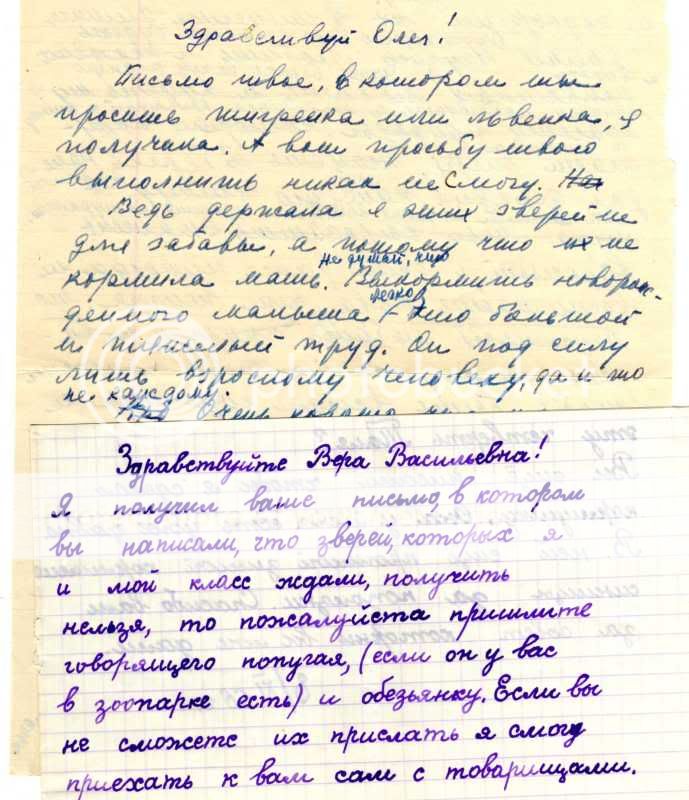 Здравствуй Олег!
Письмо твое, в котором ты
просишь тигренка или львенка, я
получила. А вот просьбу твою
выполнить никак не смогу.
Ведь держала я этих зверей не
для забавы, а потому что их не
Не думай, что
кормила мать. Выкормить новорож-
легко
денного малыша – это большой
и труд. Он под силу
лишь взрослому человеку, да и то
не каждому.
Очень
Здравствуйте Вера Васильевна!
Я получил ваше письмо, в котором
вы написали, что зверей, которых я
и мой класс ждали, получить
нельзя, то пожалуйста пришлите
говорящего попугая, (если он у вас
в зоопарке есть) и обезьянку. Если вы
не сможете их прислать я смогу
приехать к вам сам с товарищами.